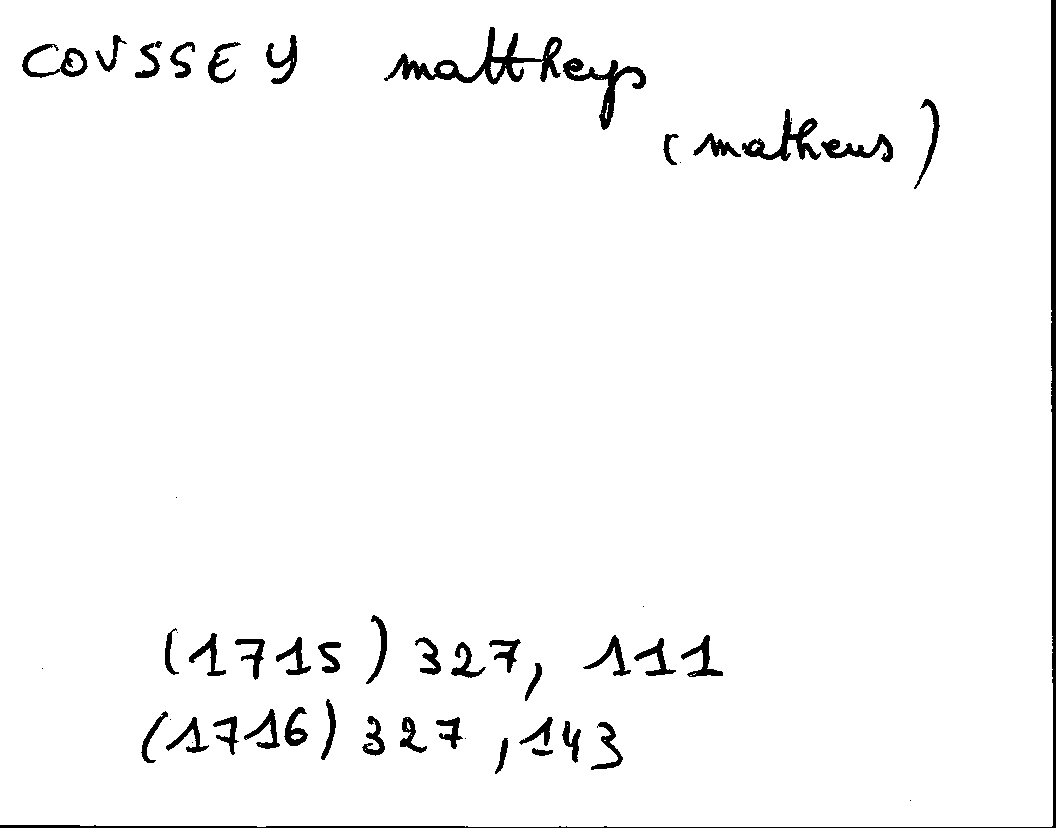 COUSSEY mattheys
(matheus)
(1715) 327, 111
(1716) 327, 143